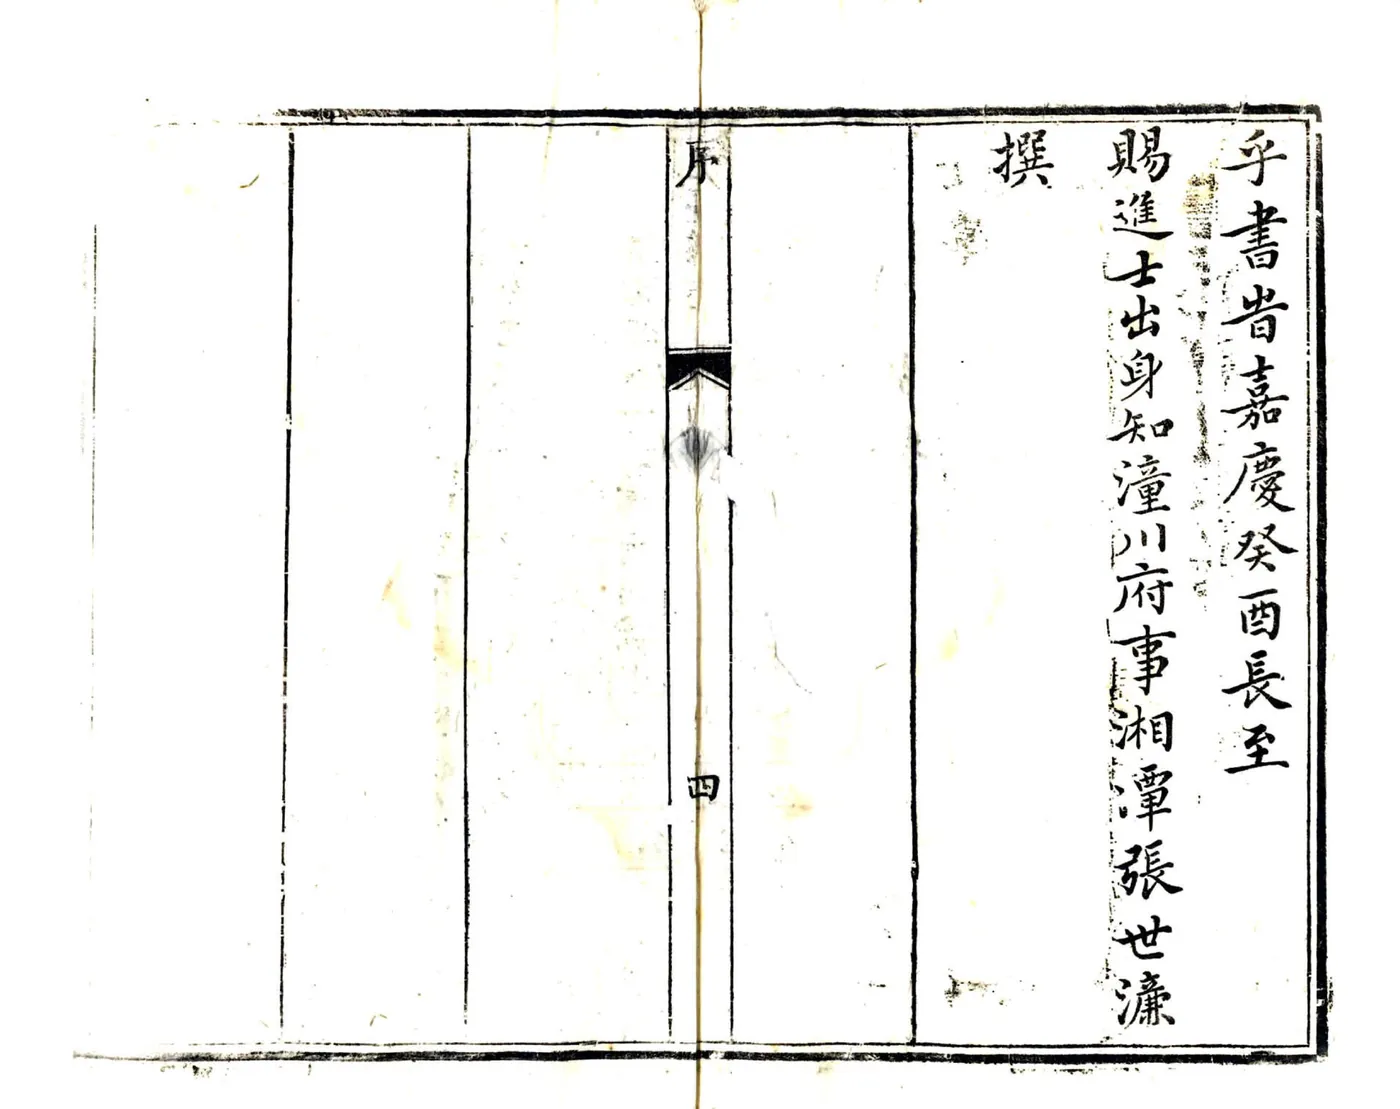 乎書旹嘉慶癸酉長至
賜進士出身知潼川府事湘潭張世濂
撰
序
四